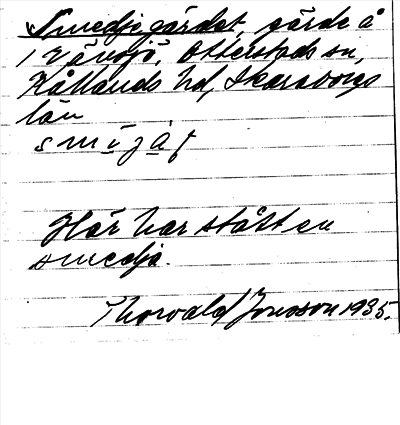 Smedjegärdet, gärde å
1 Vävsjö, Otterstads sn,
Kållands hd, Skaraborgs
län
Här har stått en
smedja.
Thorvald Jonsson 1935.